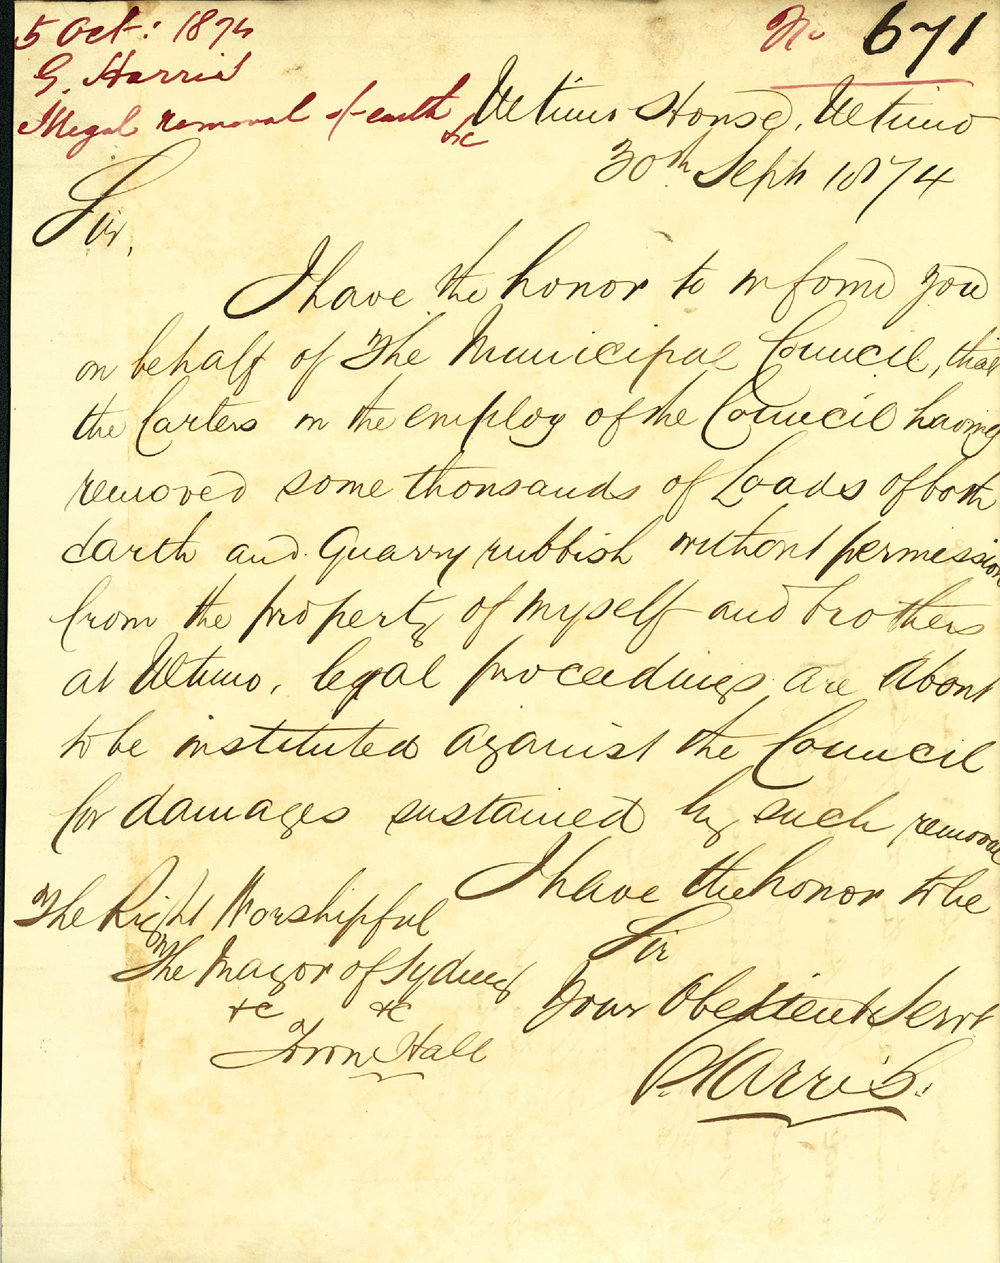 5 Oct: 1874
G. Harris
Illegal removal of earth &c
No 671
Ultimo House, Ultimo
30th Sept 1874
Sir,
I have the honor to inform you
on behalf of The Municipal Council, that
the Carters in the employ of the Council having
removed some thousands of Loads of both
Earth and Quarry rubbish without permission
from the property of myself and brothers
at Ultimo, legal proceedings are about
to be instituted against the Council
for damages sustained by such removal
I have the honor to be
Sir
Your Obedient Servt
Harris
The Right Worshipful
The Mayor of Sydney
&c &c
Town Hall